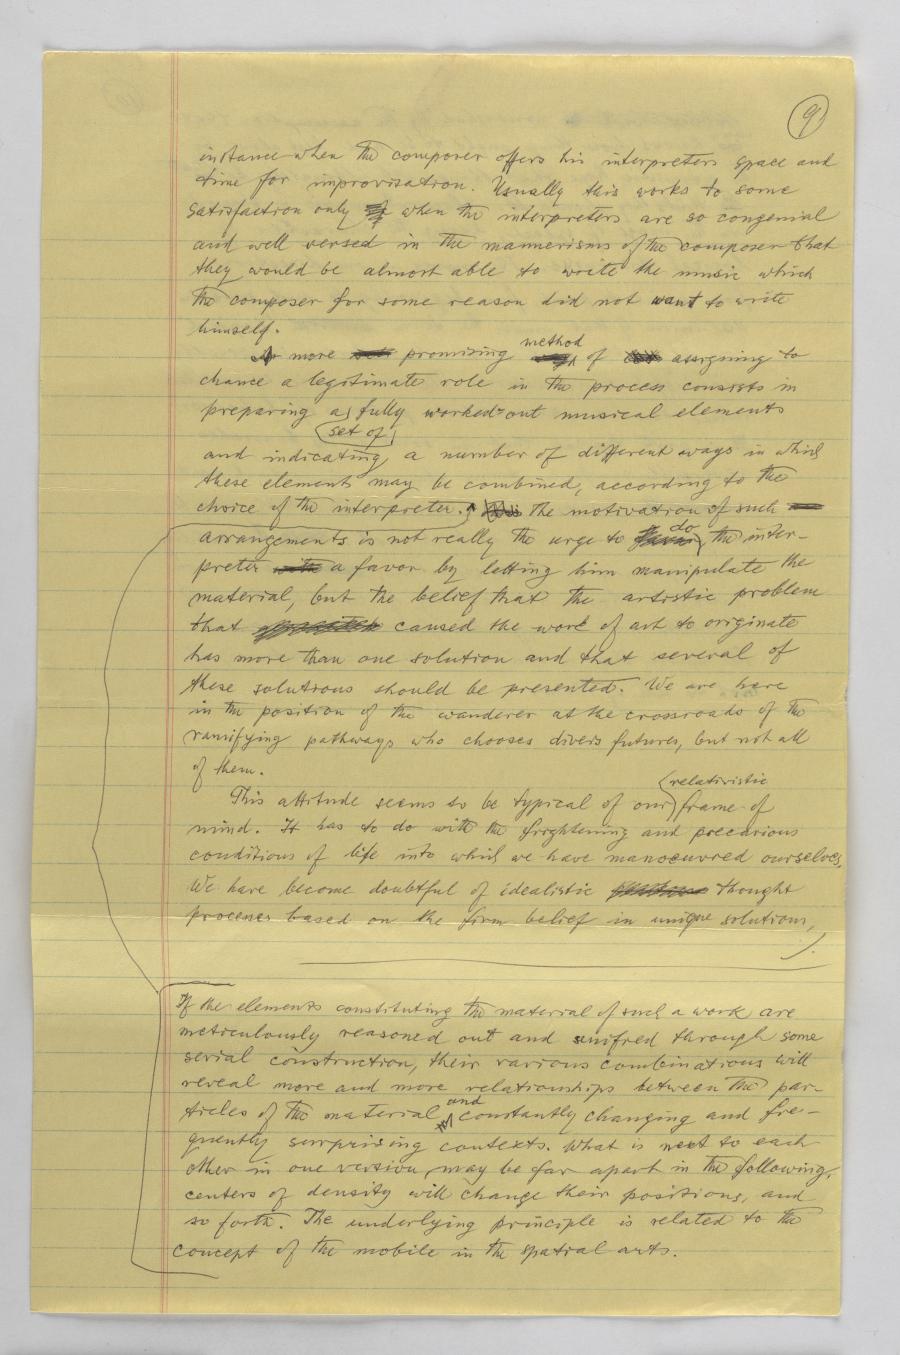 9)
instance when the composer offers his interpreters space and
time for improvisation. Usually this works to some
satisfaction only when the interpreters are so congenial
and well versed in the mannerisms of the composer that
they would be almost able to write the music which
the composer for some reason did not want to write
himself.
A more promising method of assigning to
chance a legitimate role in the process consists in
preparing a set of fully worked-out musical elements
and indicating a number of different ways in which
these elements may be combined, according to the
choice of the interpreter. The motivation of such
arrangements is not really the urge to do the inter-
preter a favor by letting him manipulate the
material, but the belief that the artistic problem
that caused the work of art to originate
has more than one solution and that several of
these solutions should be presented. We are here
in the position of the wanderer at the crossroads of the
ramifying pathways who chooses divers futures, but not all
of them.
This attitude seems to be typical of our relativistic frame of
mind. It has to do with the frightening and precarious
conditions of life into which we have manoeuvred ourselves.
We have become doubtful of idealistic thought
processes based on the firm belief in unique solutions,
If the elements constituting the material of such a work are
meticulously reasoned out and unified through some
serial construction, their various combinations will
reveal more and more relationships between the par-
ticles of the material and constantly changing and fre-
quently surprising contexts. What is next to each
other in one version, may be far apart in the following,
centers of density will change their positions, and
so forth. The underlying principle is related to the
concept of the mobile in the spatial arts.